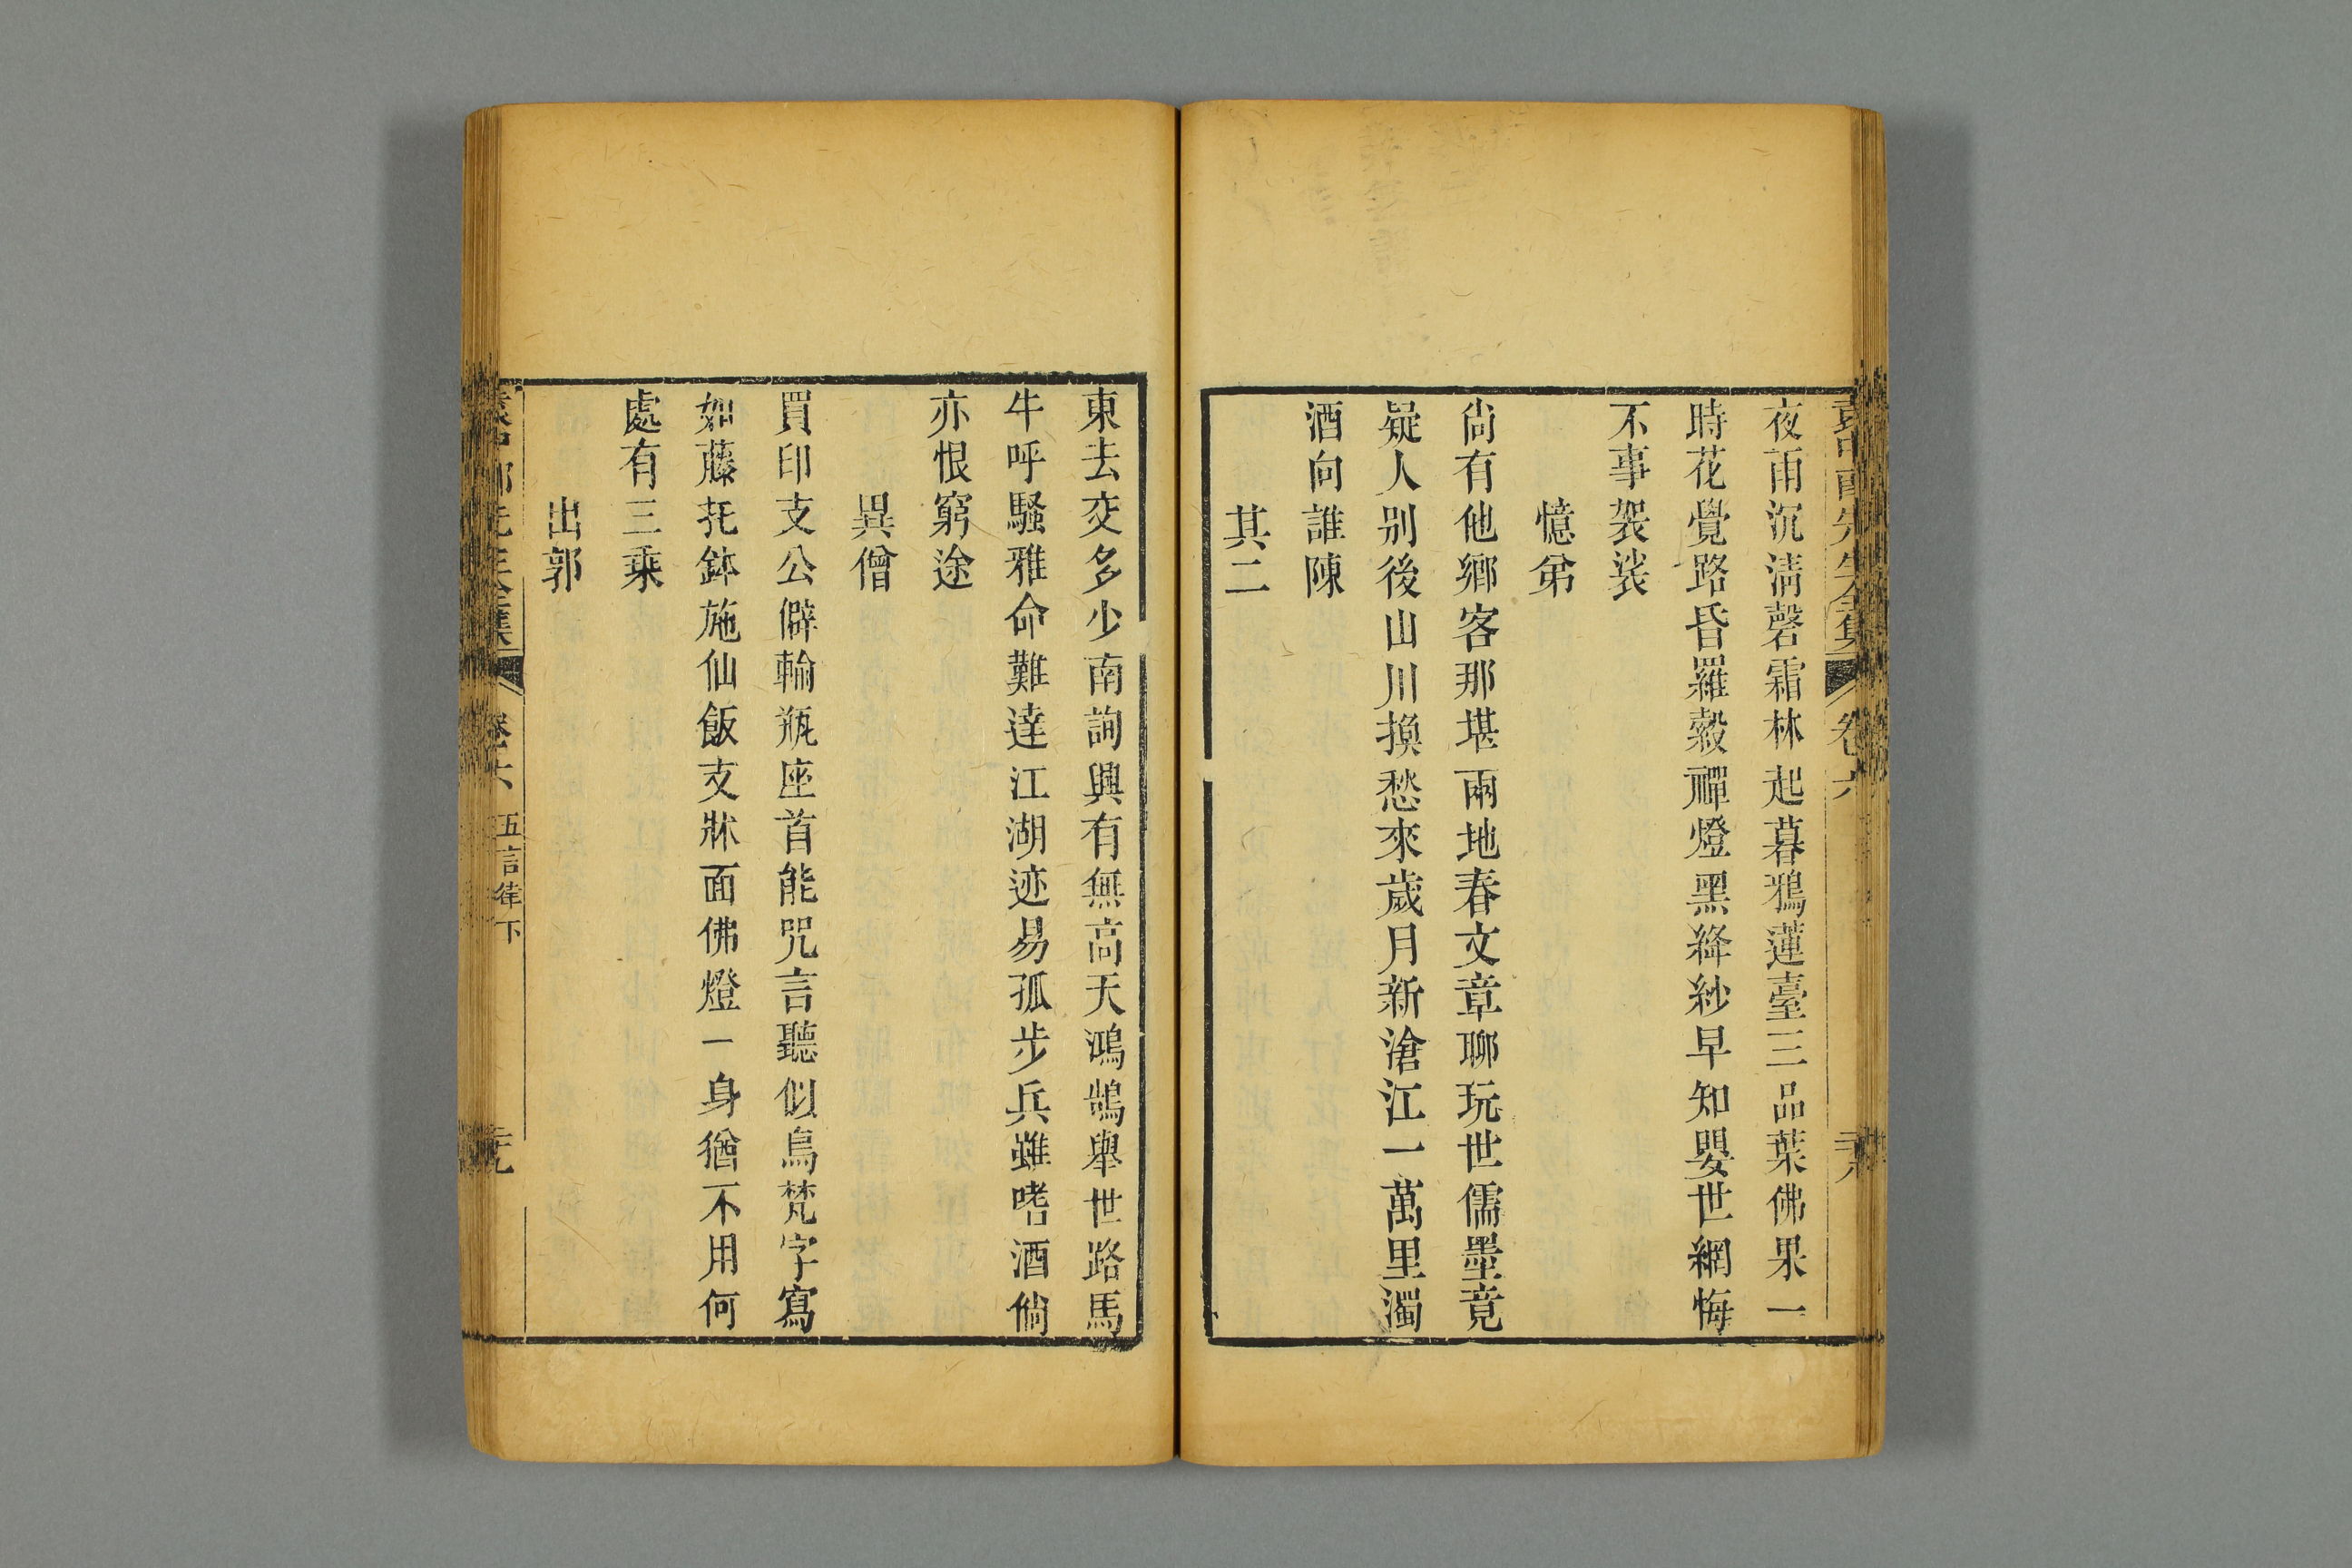 夜雨沉淸磬霜林起暮鴉蓮臺三品葉佛果一
時花覺路昏羅縠禪燈黑絳紗早知嬰世網悔
不事袈裟
憶弟
尙有他鄉客那堪兩地春文章聊玩世儒墨竟
疑人別後山川換愁來歲月新滄江一萬里濁
酒向誰陳
其二
東去交多少南詢興有無高天鴻鵠舉世路馬
牛呼騷雅命難達江湖迹易孤步兵雖嗜酒倘
亦恨窮途
異僧
買印支公僻輪瓶座首能咒言聽似鳥梵字寫
如藤托鉢施仙飯支牀面佛燈一身猶不用何
處有三乘
出郭
卷六 五言律下